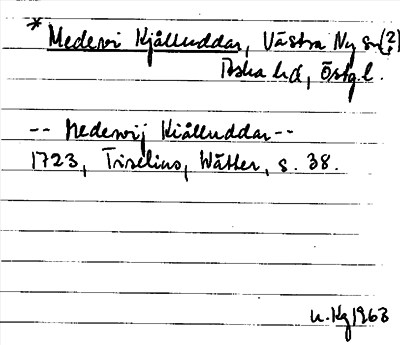 * Medevi Kjålluddar, Västra Ny sn (?)
Aska hd, Östg.l.
-- Medevij Kiålluddar --
1723, Tiselius, Wätter, s. 38.
u. Kg 1963